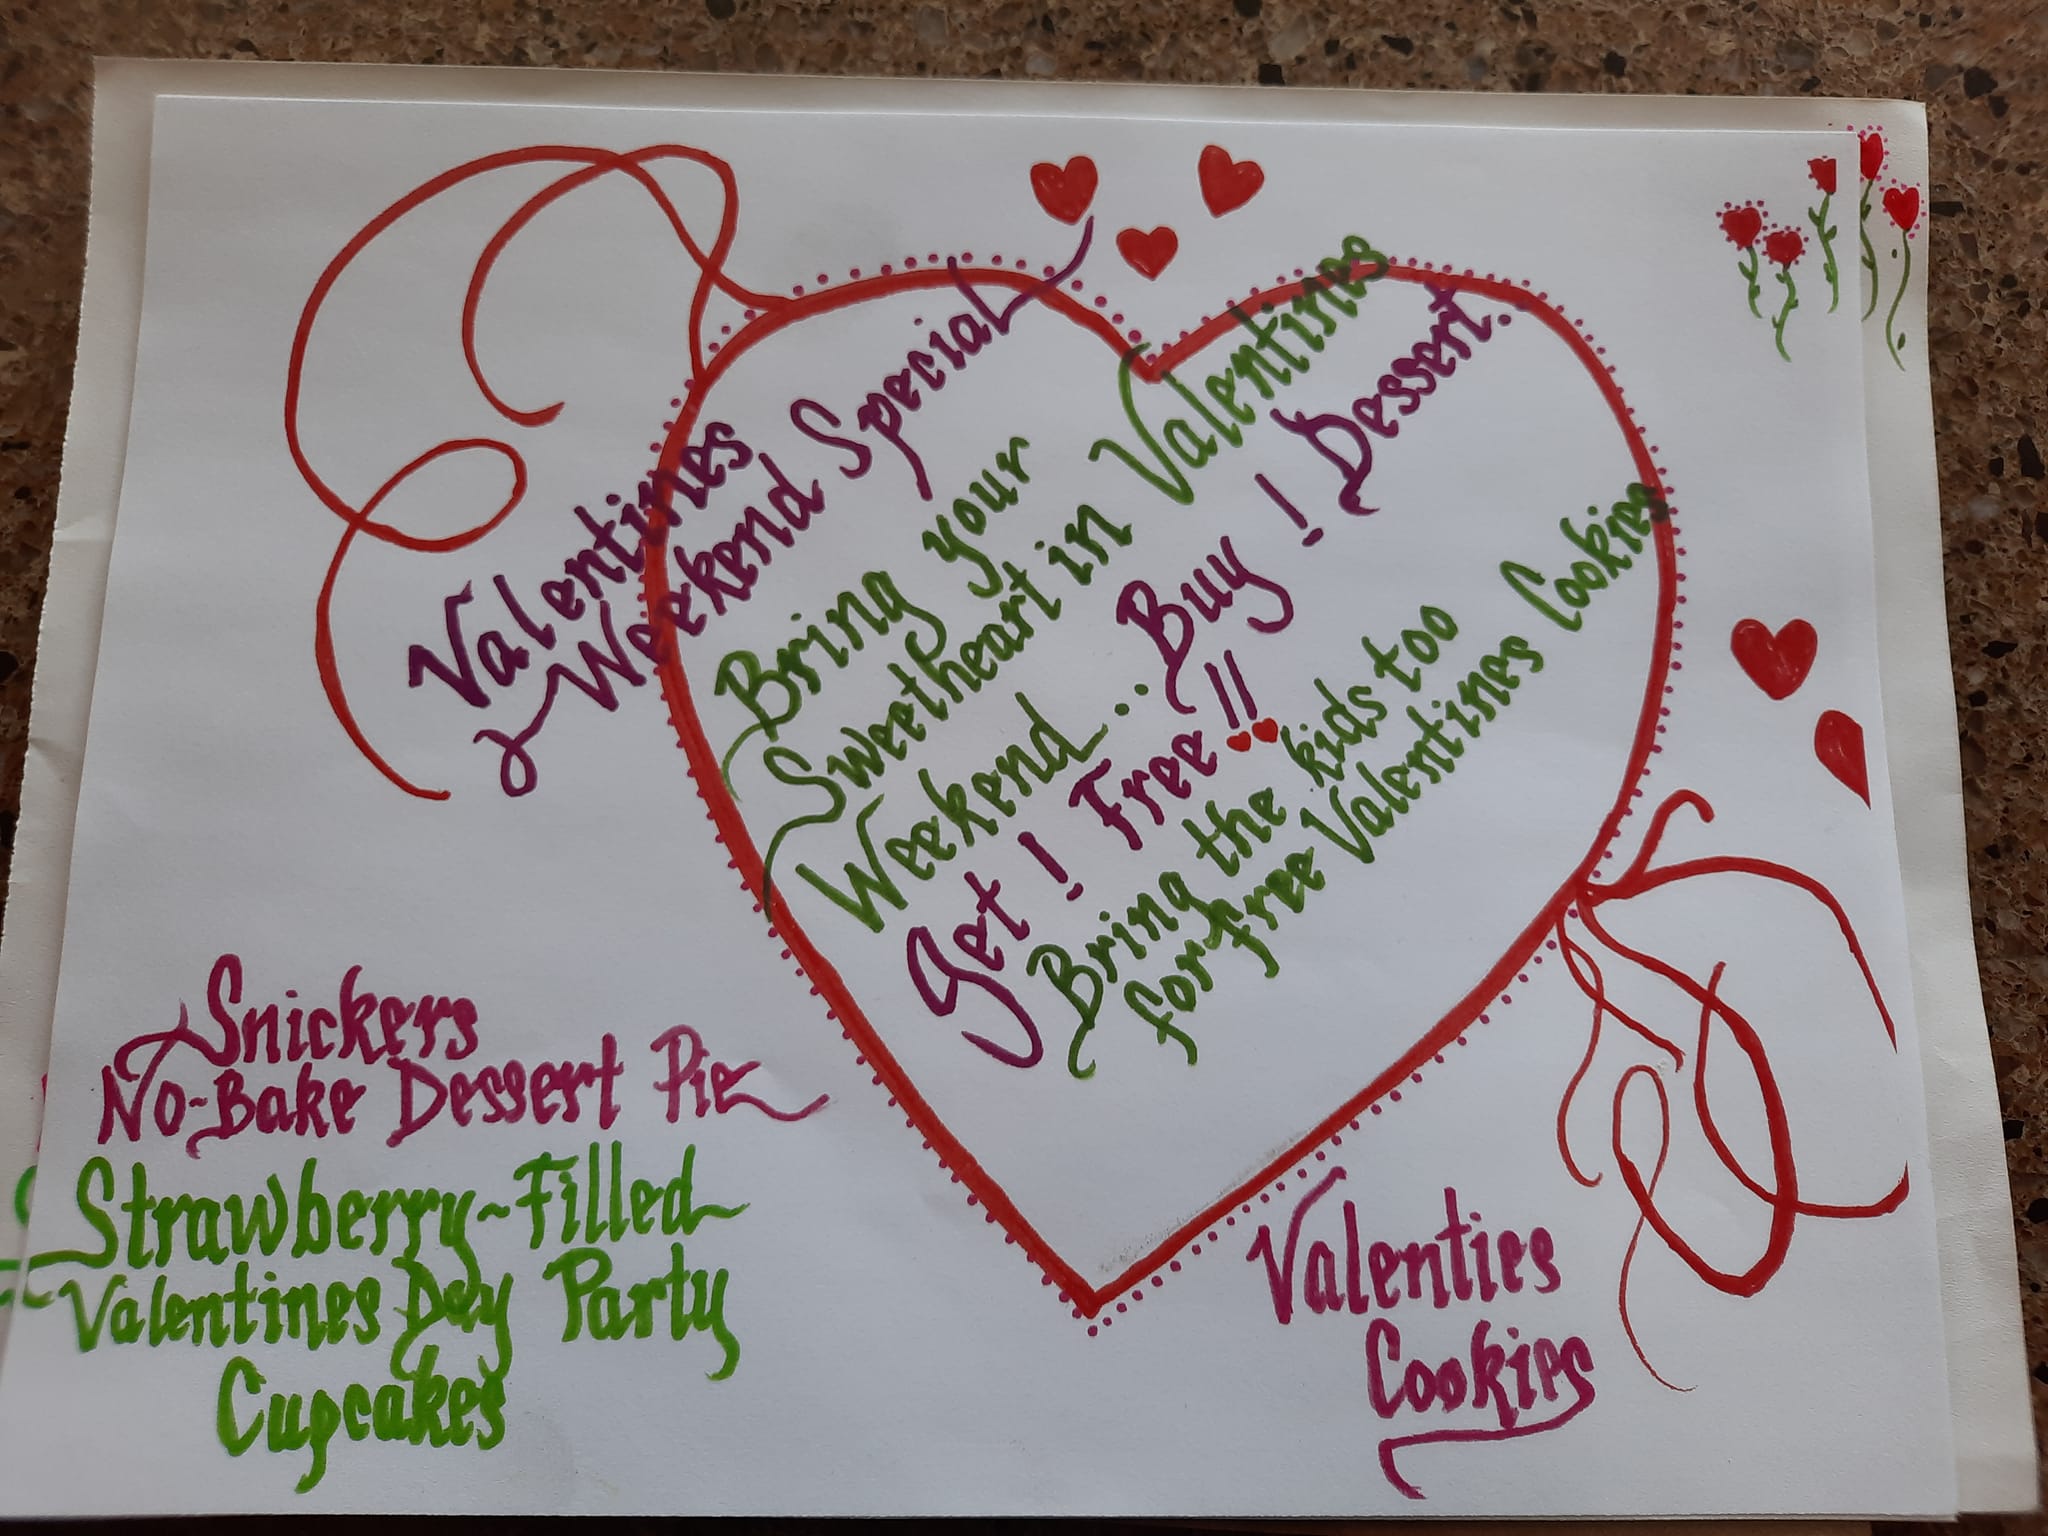 Valentines
Weekend Special
Bring your
Sweetheart in Valentines
Weekend... Buy ! Dessert.
Get ! Free!!
Bring the kids too
for free Valentines Cookies
Snickers
No-Bake Dessert Pie
Strawberry-Filled
Valentines Day Party
Cupcakes
Valenties
Cookies